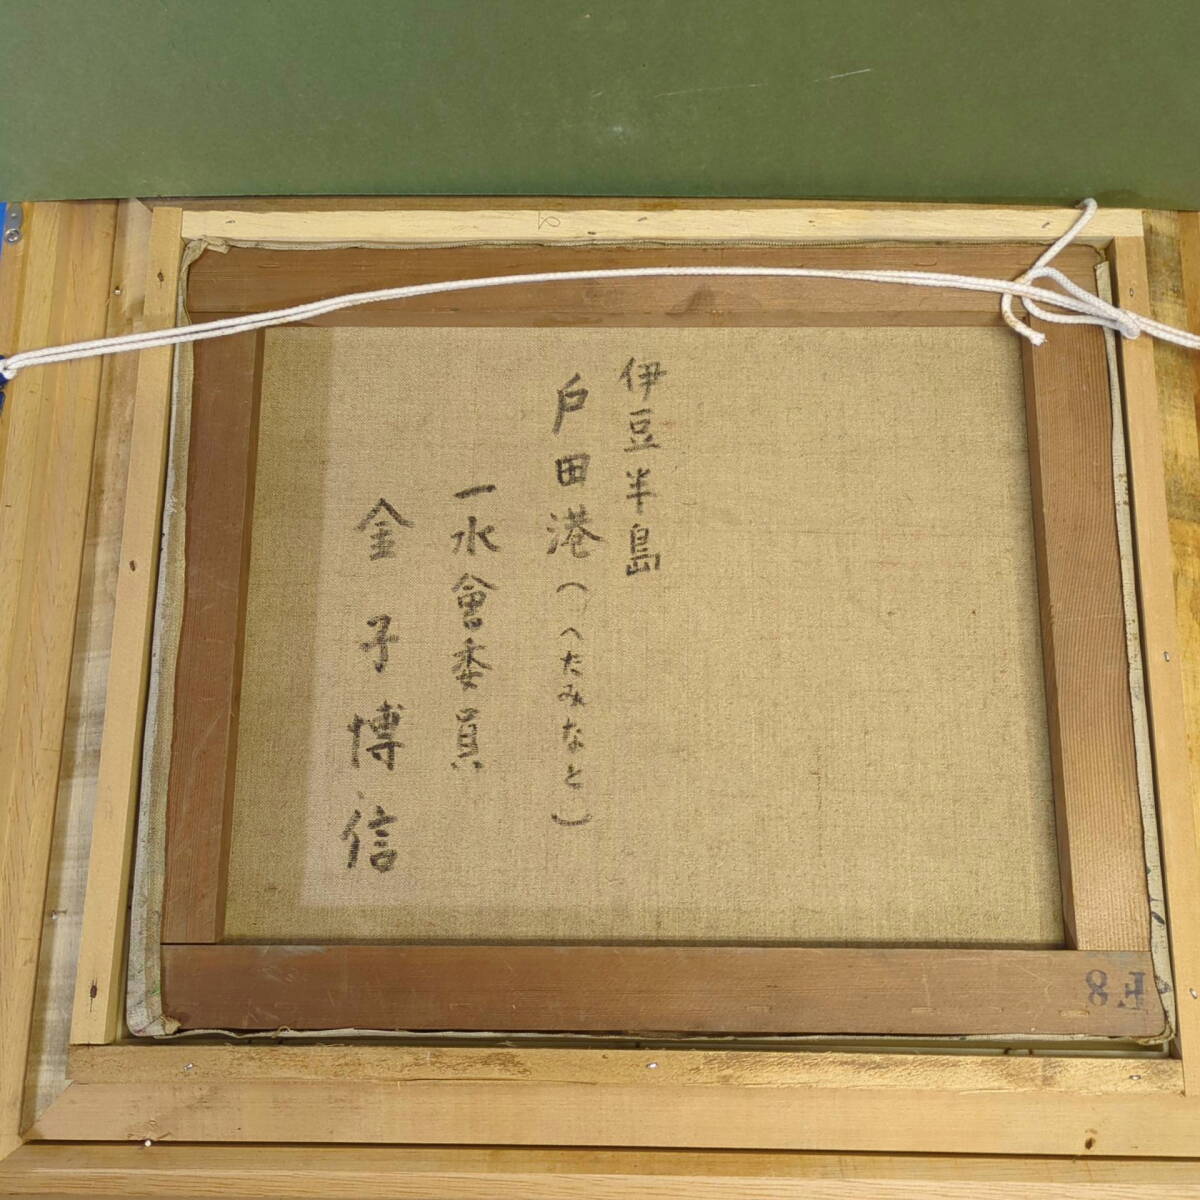 伊豆半島
戸田港(へたみなと)
一水會委員
金子博信
F8